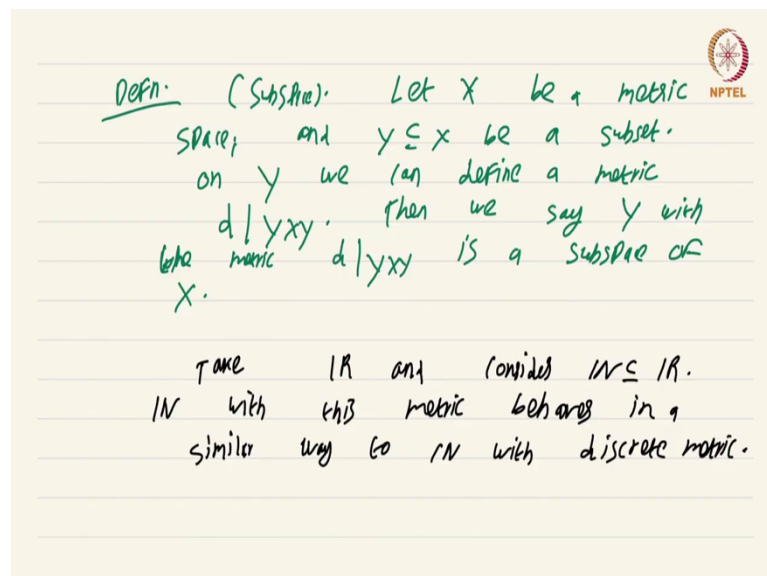 Defn. (Subspace). Let X be a metric
NPTEL
space, and Y ⊆ X be a subset.
on Y we can define a metric
d|Y×Y. Then we say Y with
the metric d|Y×Y is a subspace of
X.
Take ℝ and consider ℕ ⊆ ℝ.
ℕ with this metric behaves in a
similar way to ℕ with discrete metric.